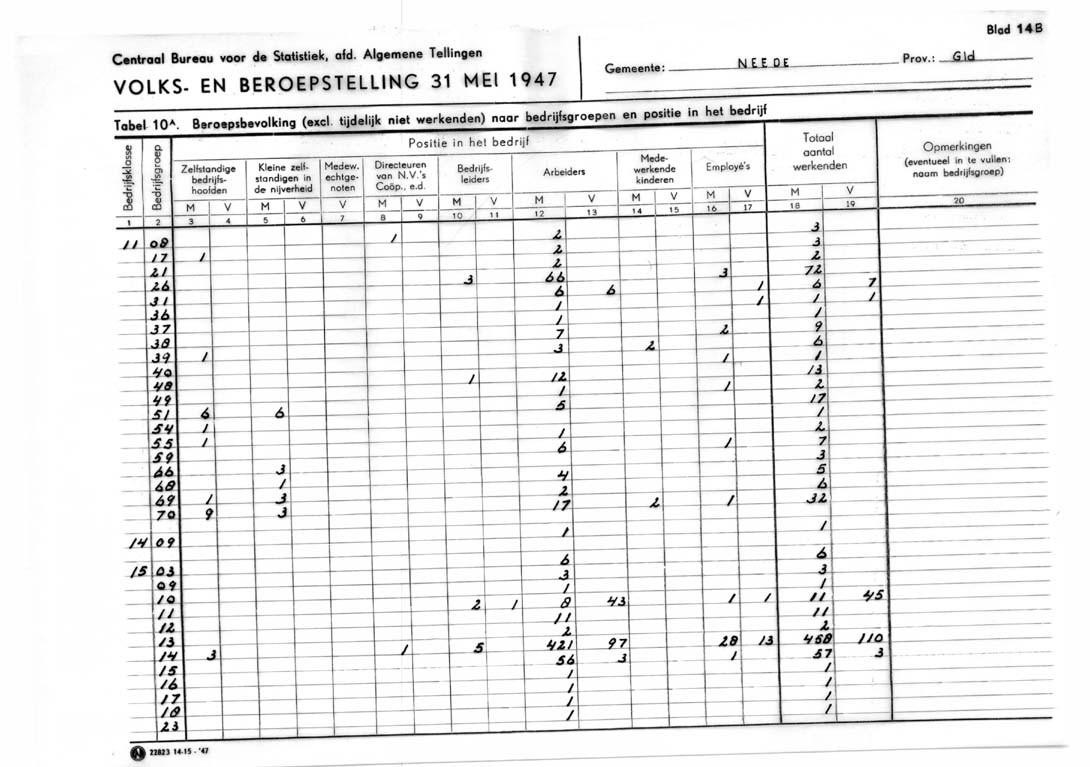 Blad 14B
Centraal Bureau voor de Statistiek, afd. Algemene Tellingen
VOLKS- EN BEROEPSTELLING 31 MEI 1947
Gemeente: NEEDE Prov.: Gld
Tabel 10A. Beroepsbevolking (excl. tijdelijk niet werkenden) naar bedrijfsgroepen en positie in het bedrijf
Bedrijfsklasse
Bedrijfsgroep
Positie in het bedrijf
Zelfstandige bedrijfs- hoofden
Kleine zelf- standigen in de nijverheid
Medew. echtge- noten
Directeuren van N.V.'s Coöp., e.d.
Bedrijfs- leiders
Arbeiders
Mede- werkende kinderen
Employé's
Totaal aantal werkenden
Opmerkingen (eventueel in te vullen: naam bedrijfsgroep)
M V M V V M V M V M V M V M V M V
1 2 3 4 5 6 7 8 9 10 11 12 13 14 15 16 17 18 19 20
11 08 1 2 3
17 1 2 3
21 2 2
26 3 66 3 72
31 6 6 1 6 7
36 1 1 1 1
37 1 1
38 7 2 9
39 1 3 2 6
40 1 1
48 1 12 13
49 1 1 2
51 6 6 5 17
54 1 1
55 1 1 2
59 6 1 7
66 3 3
68 1 4 5
69 1 3 2 6
70 9 3 17 2 1 32
14 09 1 1
15 03 6 6
09 3 3
10 1 1
11 2 1 8 43 1 1 11 45
12 11 11
13 2 2
14 3 1 5 421 97 28 13 458 110
15 56 3 1 57 3
16 1 1
17 1 1
18 1 1
23 1 1
22823 14-15 - '47